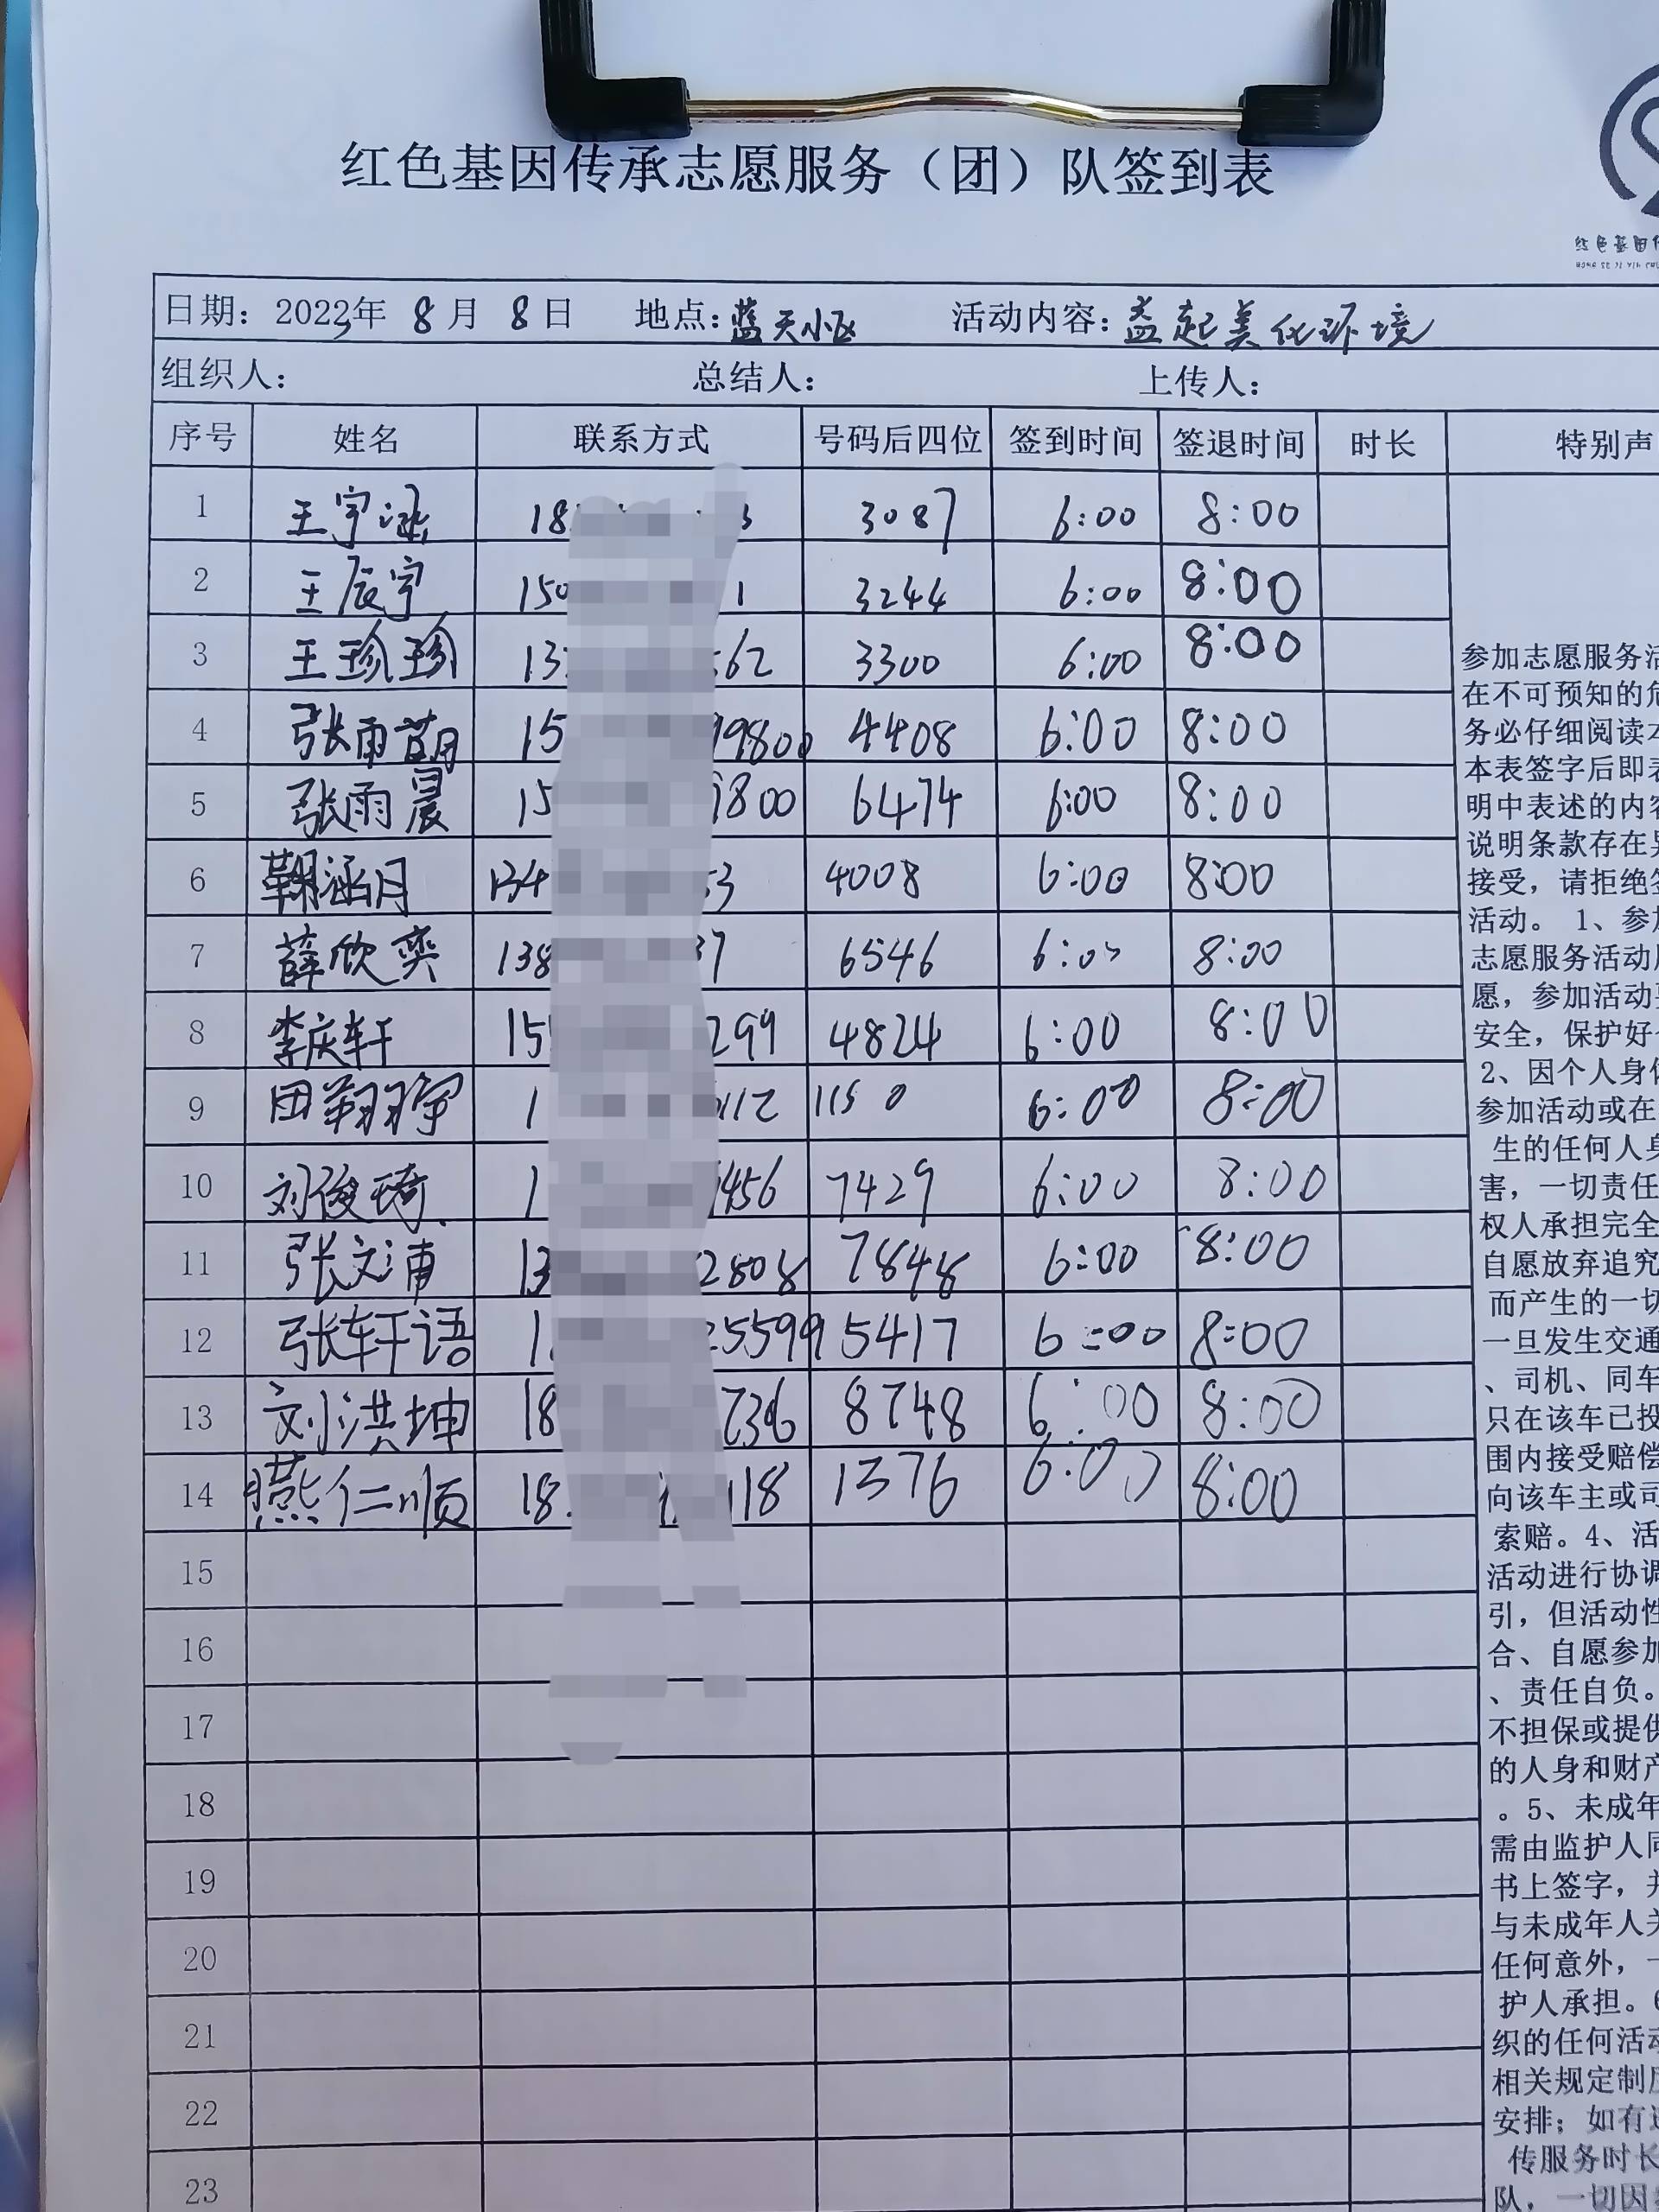 红色基因传承志愿服务（团）队签到表
日期：2023年 8月 8日 地点：蓝天小区 活动内容：益起美化环境
组织人： 总结人： 上传人：
序号 姓名 联系方式 号码后四位 签到时间 签退时间 时长 特别声
1 王宇涵 18 3 3087 6:00 8:00
2 王辰宇 150 1 3244 6:00 8:00
3 王珍珍 13 62 3300 6:00 8:00
4 张雨萌 15 9800 4408 6:00 8:00
5 张雨晨 15 9800 6474 6:00 8:00
6 鞠涵月 134 53 4008 6:00 8:00
7 薛欣奕 138 37 6546 6:00 8:00
8 李庆轩 15 299 4824 6:00 8:00
9 田翔宇 1 112 1150 6:00 8:00
10 刘俊琦 1 456 7429 6:00 8:00
11 张文浦 13 2808 7848 6:00 8:00
12 张轩语 1 5599 5417 6:00 8:00
13 刘洪坤 18 736 8748 6:00 8:00
14 仁顺 18 118 1376 6:00 8:00
15
16
17
18
19
20
21
22
23
参加志愿服务活
在不可预知的危
务必仔细阅读本
本表签字后即表
明中表述的内容
说明条款存在异
接受，请拒绝签
活动。 1、参加
志愿服务活动
愿，参加活动要
安全，保护好
2、因个人身体
参加活动或在
生的任何人身
害，一切责任
权人承担完全
自愿放弃追究
而产生的一切
一旦发生交通
、司机、同车
只在该车已投
围内接受赔偿
向该车主或司
索赔。4、活
活动进行协调
引，但活动性
合、自愿参加
、责任自负。
不担保或提供
的人身和财产
。5、未成年
需由监护人同
书上签字，并
与未成年人关
任何意外，一
护人承担。6
织的任何活动
相关规定制度
安排；如有
传服务时长
队，一切因